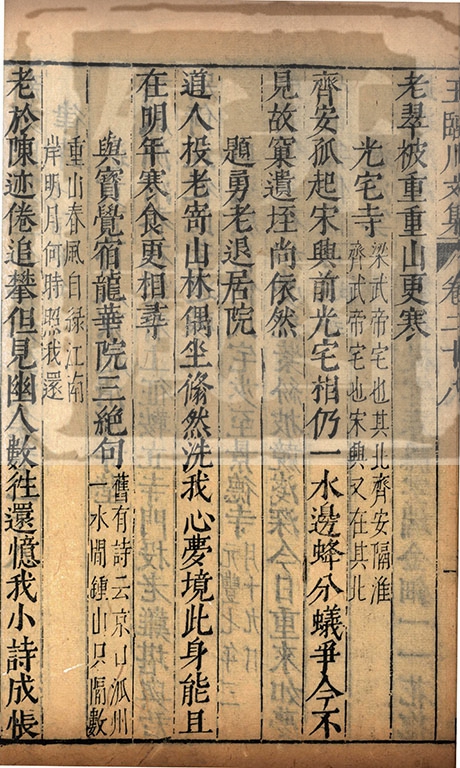 王臨川文集 卷二十八
老翠被重重山更寒
光宅寺
梁武帝宅也其北齊安隔淮
齊武帝宅也宋興又在其北
齊安孤起宋興前光宅相仍一水邊蜂分蟻爭今不
見故窠遺垤尚依然
題勇老退居院
道人投老寄山林偶坐翛然洗我心夢境此身能且
在明年寒食更相尋
與寶覺宿龍華院三絶句
舊有詩云京口泒州
一水間鍾山只隔數
重山春風自緑江南
岸明月何時照我還
老於陳迹倦追攀但見幽人數徃還憶我小詩成悵